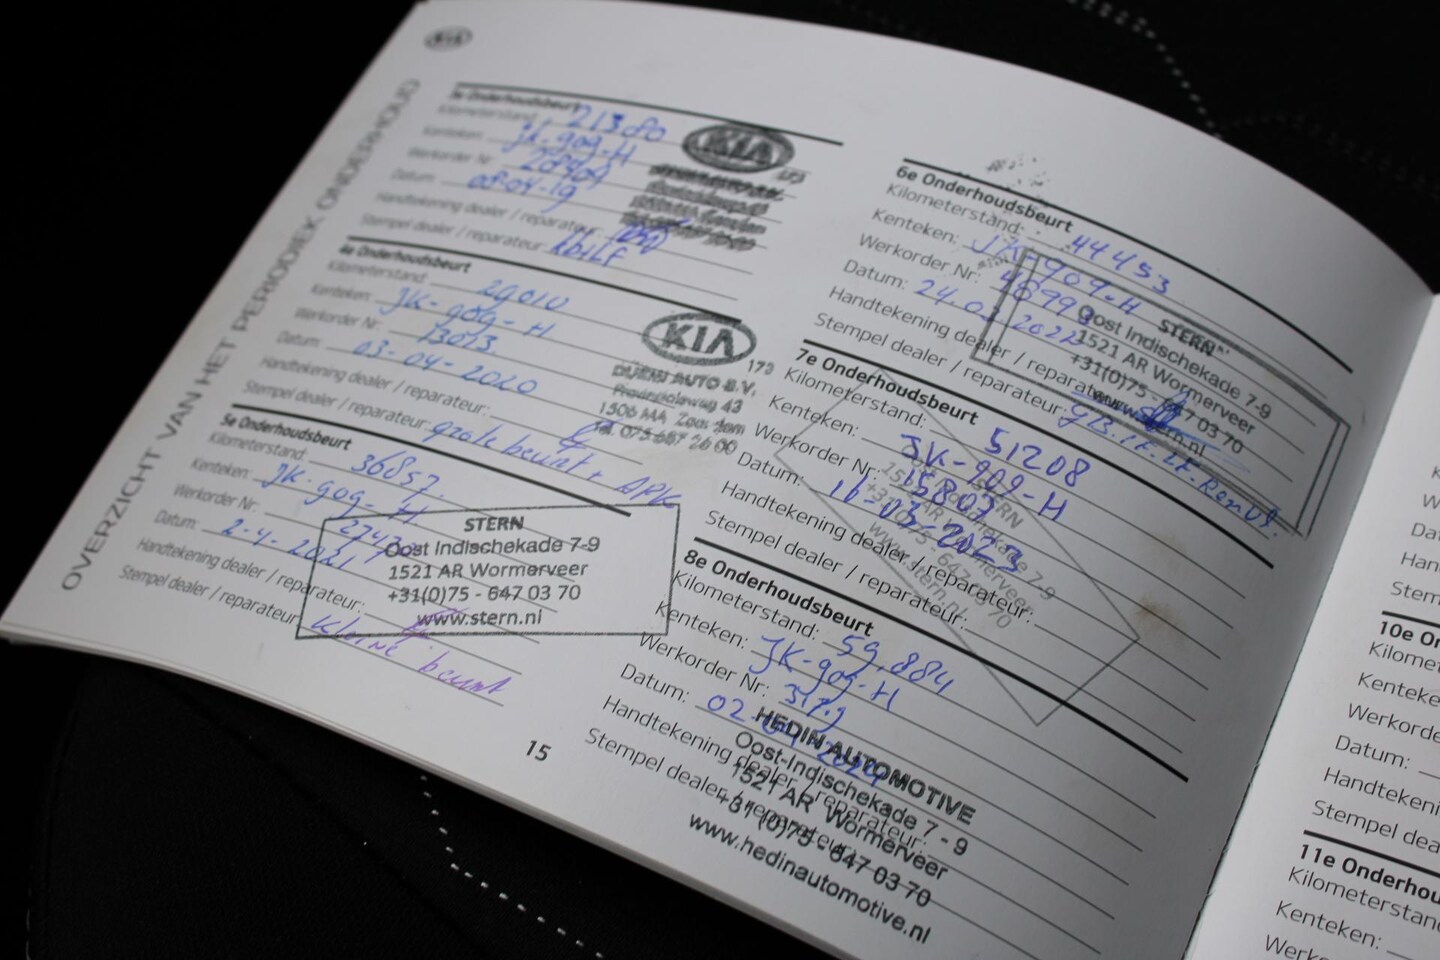 KIA
OVERZICHT VAN HET PERIODIEK ONDERHOUD
Onderhoudsbeurt
Kilometerstand: 21380
Kenteken: JK-909-H
Werkorder Nr: 28409
Datum: 08-04-19
Handtekening dealer / reparateur:
Stempel dealer / reparateur:
KIA
173
4e Onderhoudsbeurt
Kilometerstand: 29010
Kenteken: JK-909-H
Werkorder Nr: 13073
Datum: 03-04-2020
Handtekening dealer / reparateur:
Stempel dealer / reparateur: grote beurt + APK
KIA
173
AUTO B.V.
43
Tel. 075-667 26 00
5e Onderhoudsbeurt
Kilometerstand: 36857
Kenteken: JK-909-H
Werkorder Nr:
Datum: 2-4-2021
Handtekening dealer / reparateur:
Stempel dealer / reparateur: kleine beurt
STERN
Oost Indischekade 7-9
1521 AR Wormerveer
+31(0)75 - 647 03 70
www.stern.nl
15
6e Onderhoudsbeurt
Kilometerstand: 44453
Kenteken: JK-909-H
Werkorder Nr:
Datum:
Handtekening dealer / reparateur:
Stempel dealer / reparateur:
STERN
Oost Indischekade 7-9
1521 AR Wormerveer
+31(0)75 - 647 03 70
www.stern.nl
7e Onderhoudsbeurt
Kilometerstand: 51208
Kenteken: JK-909-H
Werkorder Nr: 15807
Datum: 16-03-2023
Handtekening dealer / reparateur:
Stempel dealer / reparateur:
8e Onderhoudsbeurt
Kilometerstand: 59,884
Kenteken: JK-909-H
Werkorder Nr:
Datum:
Handtekening dealer / reparateur:
Stempel dealer / reparateur:
HEDIN AUTOMOTIVE
Oost-Indischekade 7 - 9
1521 AR Wormerveer
+31 (0)75 - 647 03 70
www.hedinautomotive.nl
10e
Kilome
Kenteke
Werko
Datum:
Handtekeni
Stempel dea
11e Onderhou
Kilometerstand
Kenteken:
Werko